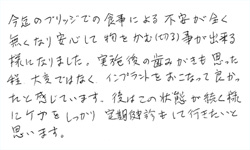 今迄のブリッジでの食事による不安が全く
無くなり安心して物をかむ(切る)事が出来る
様になりました。実施後の歯みがきも思った
程大変ではなく、インプラントをおこなって良かっ
たと感じています。後はこの状態が続く様
にケアをしっかり定期健診もして行きたいと
思います。